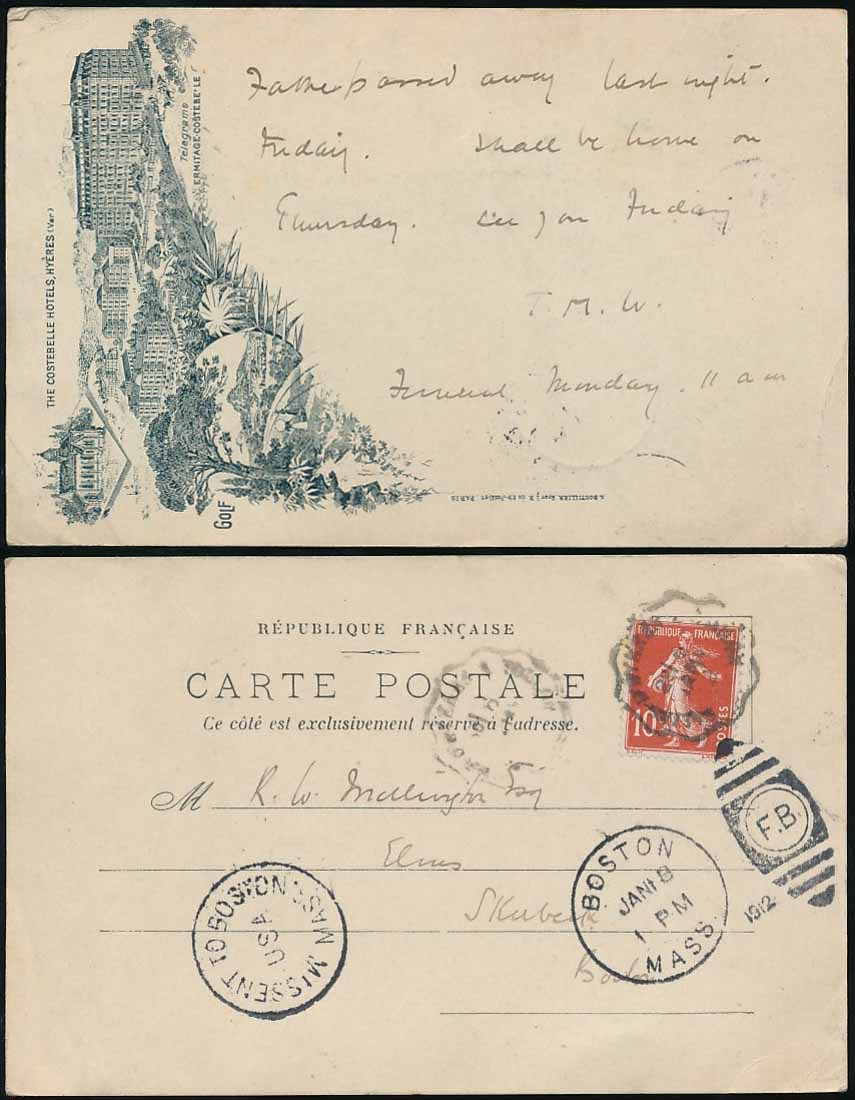 THE COSTEBELLE HOTELS, HYÈRES (Var)
Telegrams
ERMITAGE-COSTEBELLE
GOLF
Father passed away last night.
Friday. Shall be home on
Thursday. See you Friday
T. M. W.
Funeral Monday. 11 am
RÉPUBLIQUE FRANÇAISE
CARTE POSTALE
Ce côté est exclusivement réservé à l'adresse.
REPUBLIQUE FRANÇAISE
10
POSTES
M R. W. Esq
Elms
Skirbeck
Boston
MISSENT TO BOSTON, MASS.
USA
BOSTON
JAN 18
1 PM
MASS
1912
F.B.